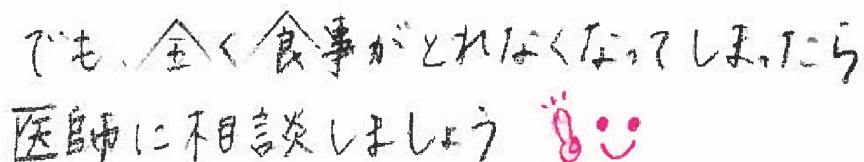 でも、全く食事がとれなくなってしまったら
医師に相談しましょう！